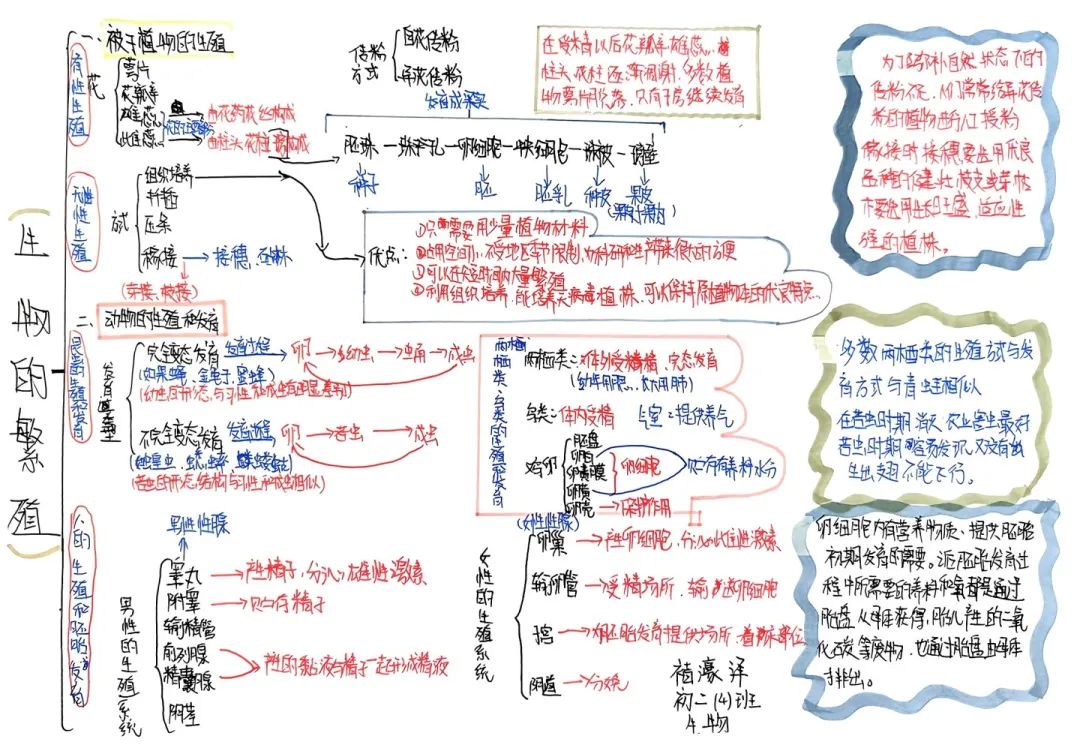 生物的繁殖
一、被子植物的生殖
有性生殖
花
萼片
花瓣
雄蕊
雌蕊
由花药花丝构成
由柱头花柱构成
传粉方式
自花传粉
异花传粉
在受精以后花瓣、雄蕊、
柱头、花柱逐渐凋谢,多数植
物萼片脱落,只有子房继续发育
发育成果实
胚珠—珠孔—卵细胞—中央细胞—珠被—子房壁
种子
胚
胚乳
种皮
果皮
无性生殖
组织培养
扦插
压条
嫁接
接穗、砧木
(芽接、枝接)
优点:
①只需要用少量植物材料
②占用空间小,不受地区季节限制,为科研和生产带来很大的方便
③可以在短时间内大量繁殖
④利用组织培养,能培养无病毒植株,可以保持原植物体的优良特点
为了弥补自然状态下的
传粉不足,人们常常给异花传
粉的植物进行人工授粉
嫁接时接穗要选用优良
品种的健壮枝或芽,砧
木要选用生长旺盛,适应性
强的植株。
二、动物的生殖和发育
昆虫的生殖和发育
发育类型
完全变态发育
发育过程
卵→幼虫→蛹→成虫
(如果蝇、金龟子、蜜蜂)
(幼虫的形态与习性和成虫有明显差别)
不完全变态发育
发育过程
卵→若虫→成虫
(若虫的形态结构与习性和成虫相似)
两栖类、鸟类的生殖和发育
两栖类:体外受精,变态发育
(幼年用鳃,成年用肺)
鸟类:体内受精
气室:提供养气
鸟卵
胚盘
卵白
卵黄膜
卵黄
卵壳
卵细胞
贮存有养料水分
保护作用
多数两栖类的生殖方式与发
育方式与青蛙相似
在若虫时期消灭农业害虫最好
若虫时期容易发现,又没有
生出翅不能飞行。
人的生殖和胚胎发育
男性的生殖系统
男性性腺
睾丸
产生精子,分泌雄性激素
附睾
贮存精子
输精管
前列腺
精囊腺
产生的黏液与精子一起形成精液
阴茎
女性的生殖系统
(女性性腺)
卵巢
产生卵细胞,分泌雌性激素
输卵管
受精场所,输送卵细胞
子宫
为胚胎发育提供场所,着床部位
阴道
分娩
卵细胞内有营养物质、提供胚胎
初期发育的需要。泛胚胎发育过
程中所需要的养料和氧都是通过
胎盘从母体获得,胎儿产生的二氧
化碳等废物,也通过胎盘由母体
排出。
初二(4)班
生物